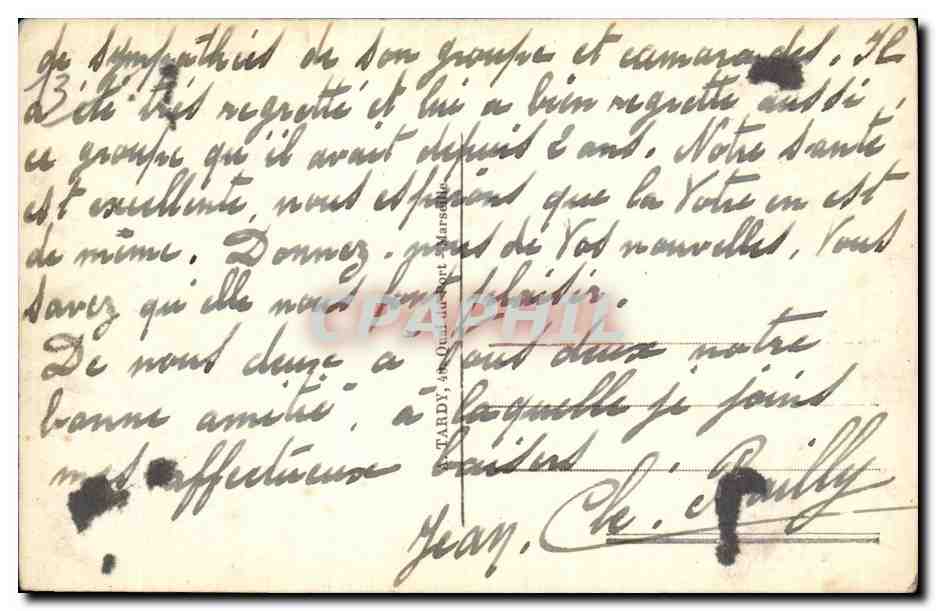 de sympathies de son groupe et camarades. Il
13
a été très regretté et lui a bien regretté aussi,
ce groupe qu'il avait depuis 2 ans. Notre santé
est excellente, nous espérons que la Votre en est
de même. Donnez-nous de Vos nouvelles, Vous
savez qu'elle nous font plaisir.
De nous deux a Vous deux notre
bonne amitié, à laquelle je joins
mes affectueux baisers.
Jean. Ch. Bailly
TARDY, 40, Quai du Port - Marseille
CPAPHIL